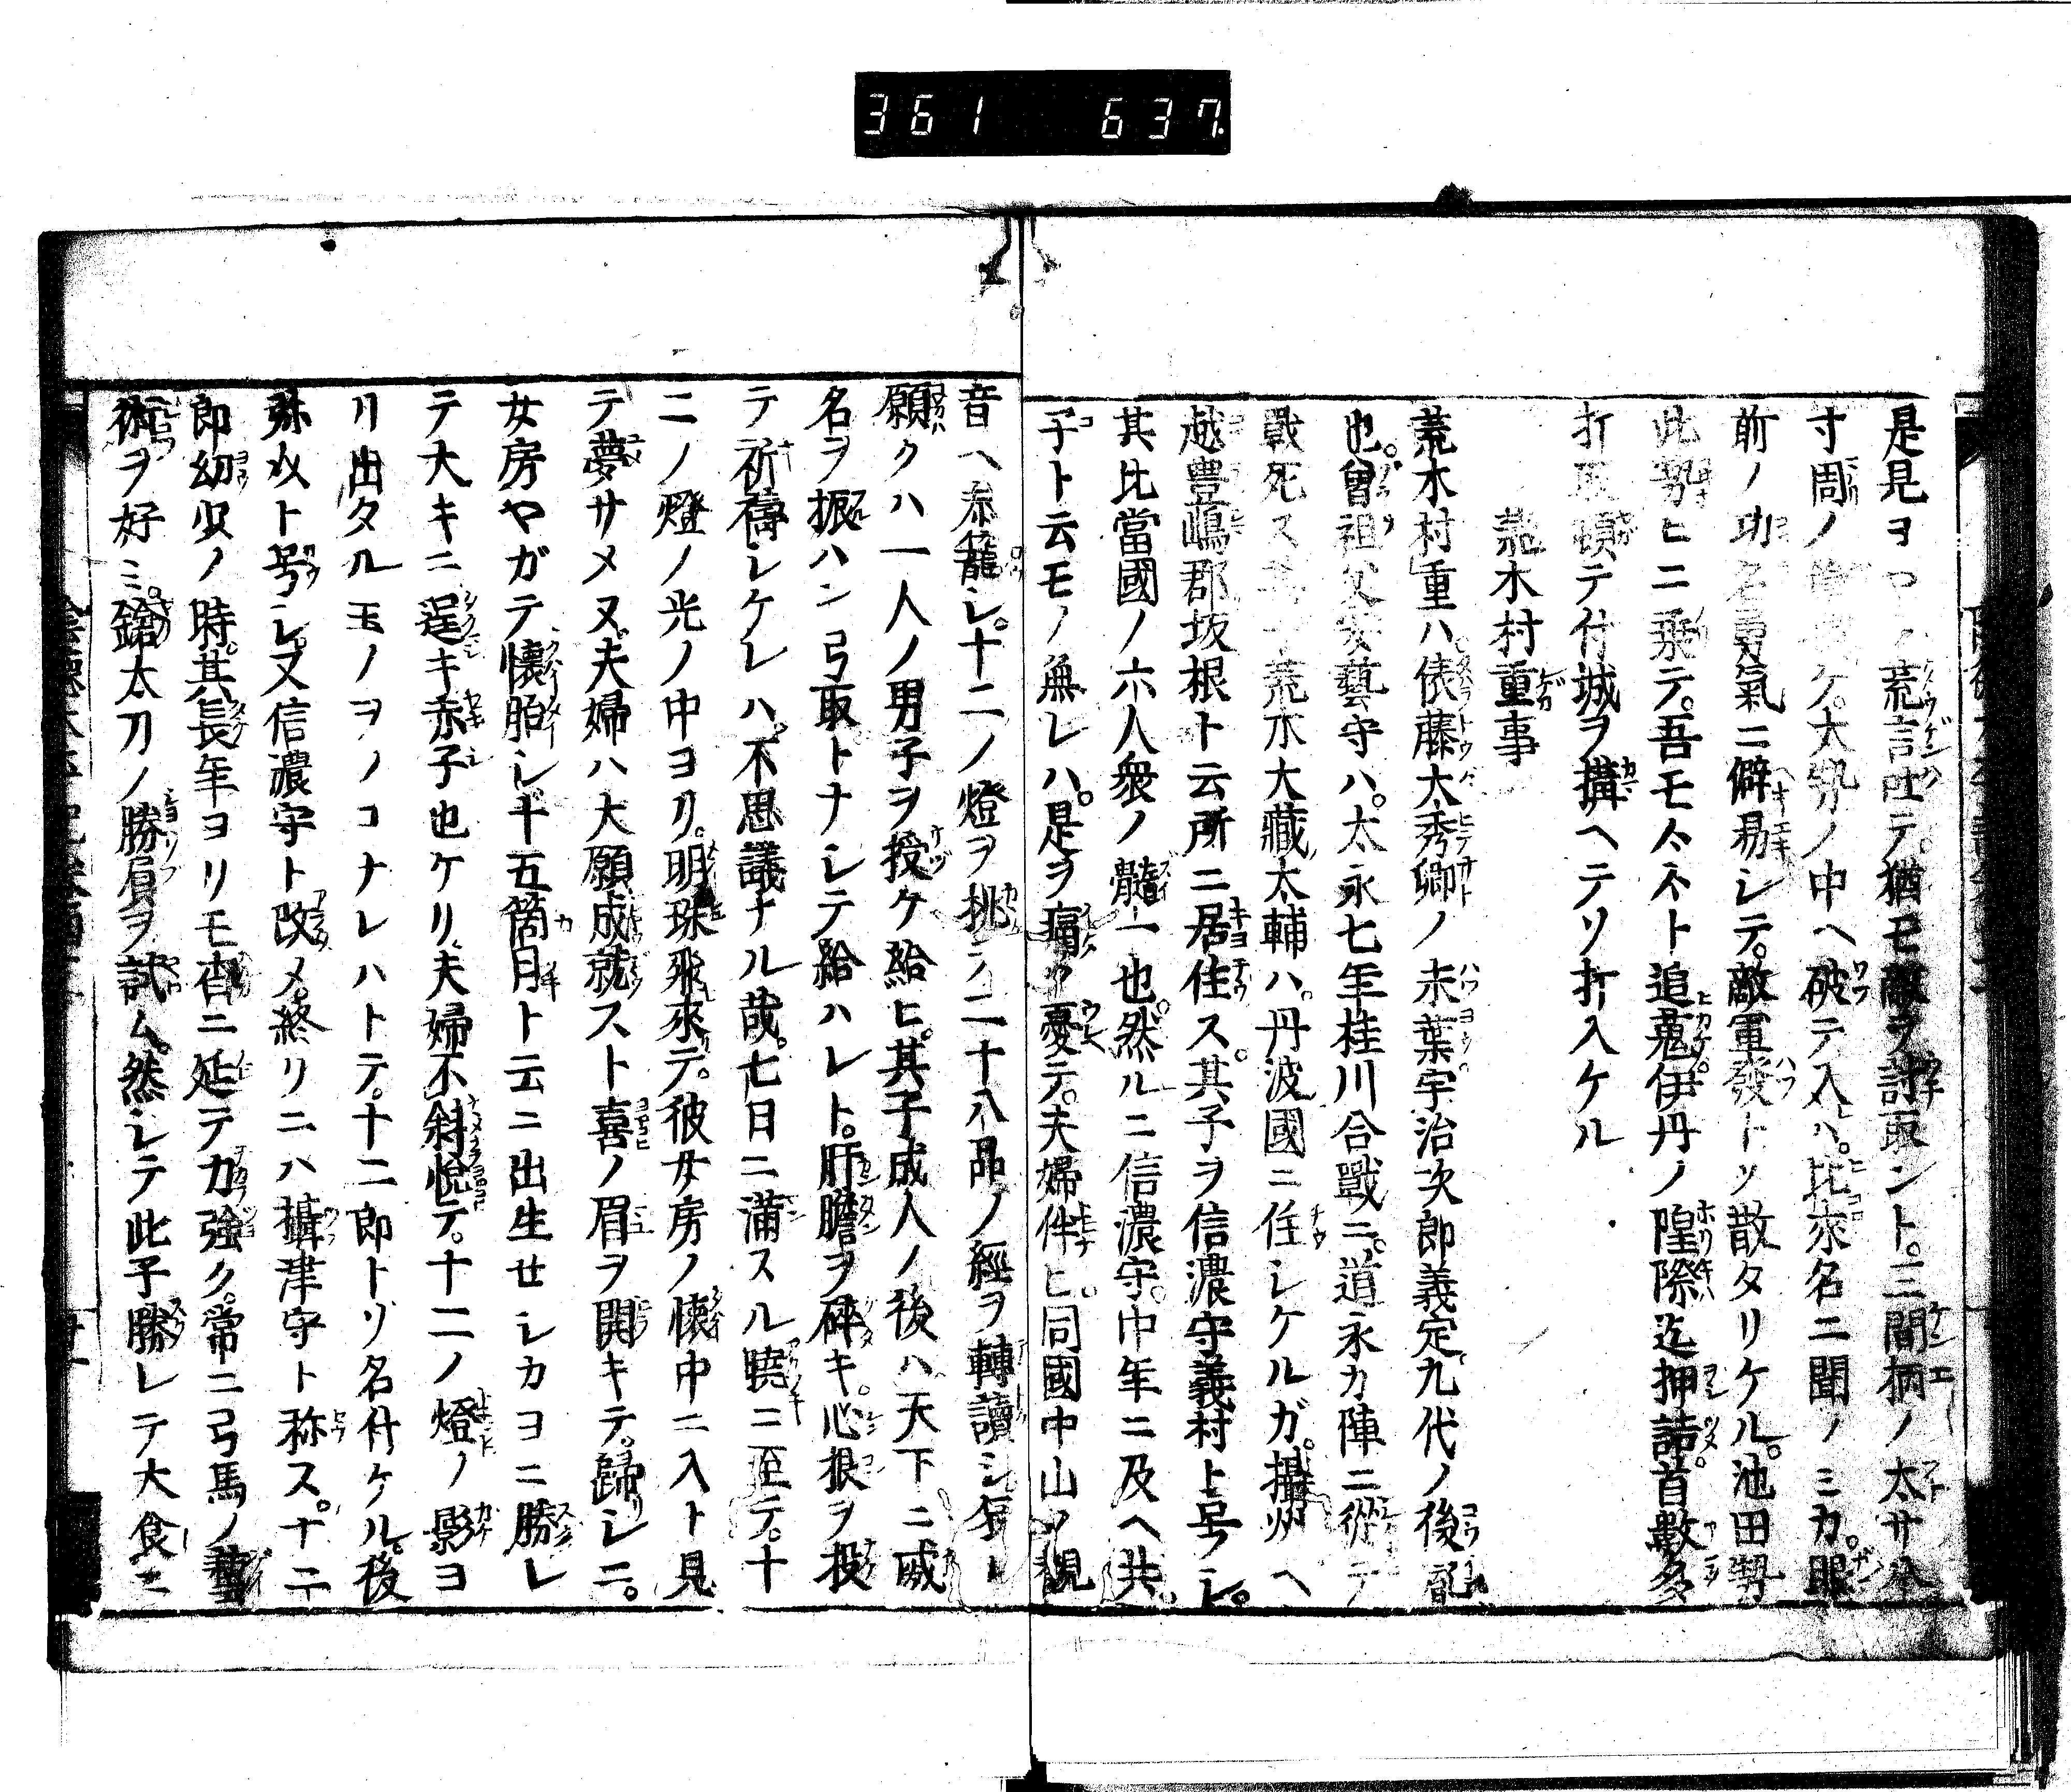 361 637
是見ヨヤノ荒言吐テ猶モ敵ヲ討取ント。三間柄ノ太サ
寸周ノ ケ。大勢ノ中ヘ破テ入ハ。比来名ニ聞ノミカ。眼
前ノ功名勇氣ニ僻易シテ。敵軍發トソ散タリケル。池田勢
此勢ヒニ乗テ。吾モ々々ト追蒐。伊丹ノ隍際迄押詰。首數多
打取頓テ付城ヲ搆ヘテソ打入ケル
荒木村重事
荒木村重ハ。俵藤大秀卿ノ末葉。宇治次郎義定九代ノ後胤
也。曽祖父安藝守ハ。太永七年桂川合戰ニ。道永カ陣ニ從テ
戰死ス 荒木大藏太輔ハ。丹波國ニ住シケルガ。攝州ヘ
越豊嶋郡坂根ト云所ニ居住ス。其子ヲ信濃守義村ト号シ。
其比當國ノ六人衆ノ髄一也。然ルニ信濃守。中年ニ及ヘ共。
子ト云モノ無レハ。是ヲ痛ク憂テ。夫婦伴ヒ。同國中山ノ観
音ヘ参籠シ。十二ノ燈ヲ挑ケ二十八品ノ經ヲ轉讀シ奉ル
願クハ一人ノ男子ヲ授ケ給ヒ。其子成人ノ後ハ天下ニ威
名ヲ振ハン弓取トナシテ給ハレト。肝膽ヲ碎キ。心根ヲ投
テ祈禱シケレハ。不思議ナル哉。七日ニ滿スル曉ニ至テ。十
二ノ燈ノ光ノ中ヨリ。明珠飛來テ。彼女房ノ懐中ニ入ト見
テ夢サメヌ。夫婦ハ大願成就スト喜ノ眉ヲ開キテ。歸シニ。
女房ヤガテ懐胎シ。十五箇月ト云ニ出生セシカヨニ勝レ
テ大キニ逞キ赤子也ケリ。夫婦不斜悦テ。十二ノ燈ノ影ヨ
リ出タル玉ノヲノコナレハトテ。十二郎トゾ名付ケル。後
弥介ト号シ。又信濃守ト改メ。終リニハ攝津守ト称ス。十二
郎幼少ノ時。其長年ヨリモ杳ニ延テ力強ク。常ニ弓馬ノ藝
術ヲ好ミ。鎗太刀ノ勝負ヲ試ム。然シテ此子勝レテ大食ニ